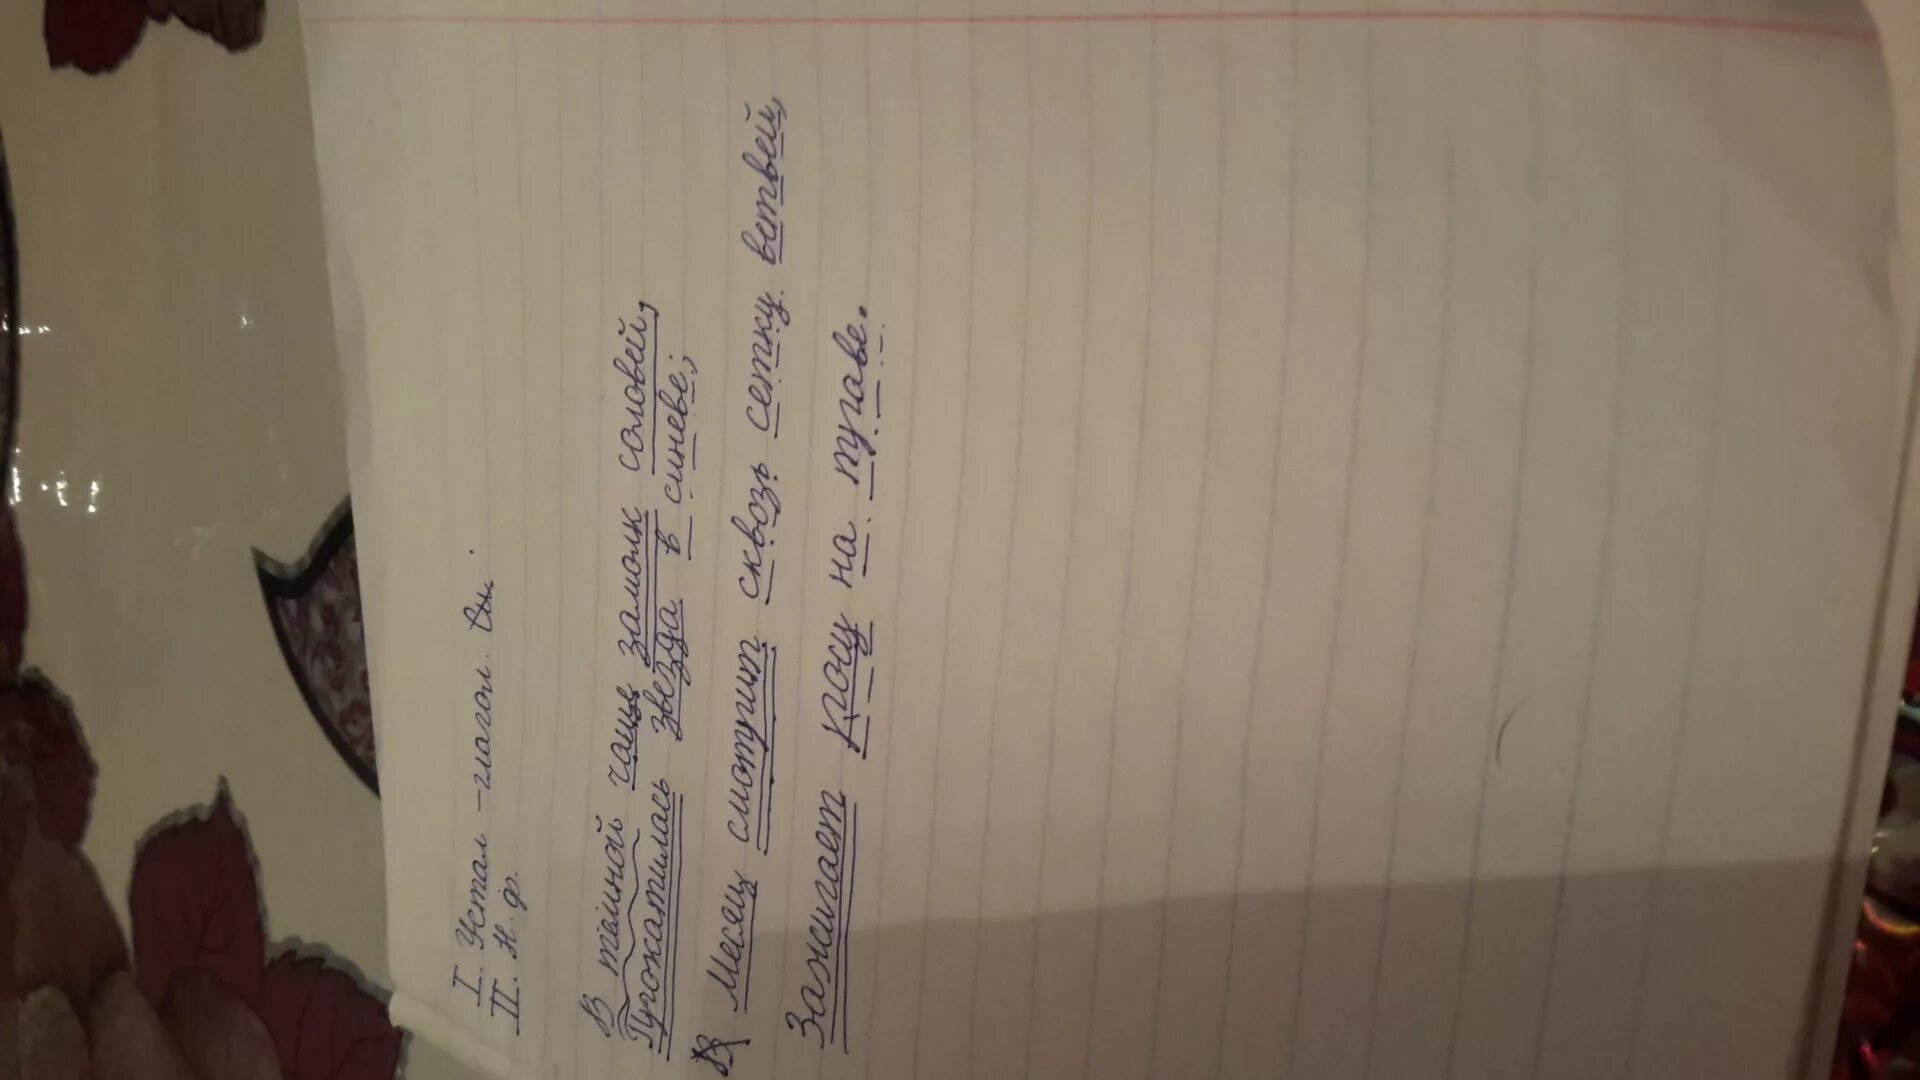 I. Устал – глагол.
II. Н. ф.
В тайной чаще замолк соловей,
Прокатилась звезда в синеве;
Месяц смотрит сквозь сетку ветвей,
Зажигает росу на траве.